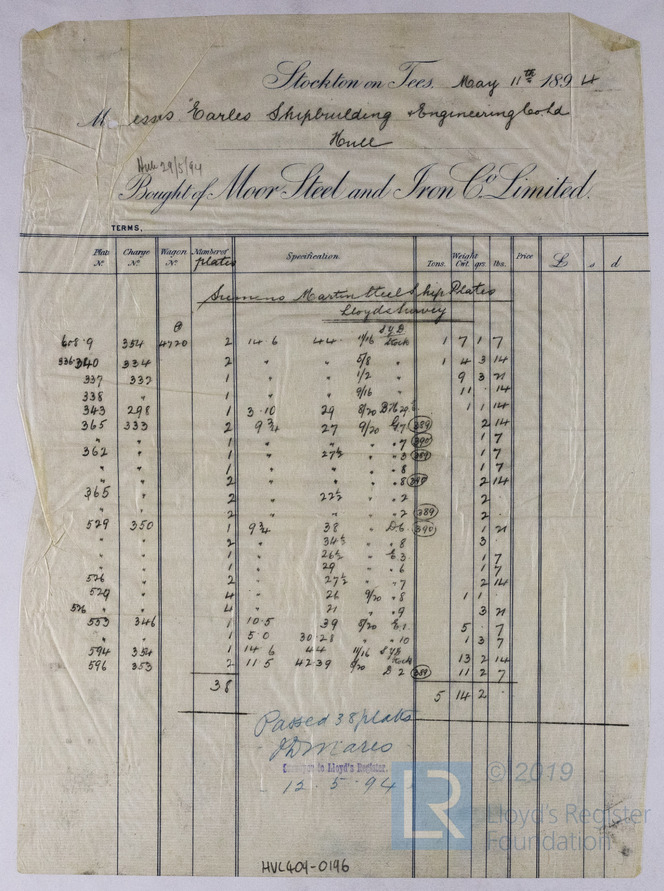 Stockton on Tees, May 11th 1894
Messrs Earles Shipbuilding & Engineering Co Ld
Hull
Hull 29/5/94
Bought of Moor Steel and Iron Co Limited.
TERMS,
Plate No. Charge No. Wagon No. Number of plates Specification. Weight Tons. Cwt. qrs. lbs. Price £ s d
Siemens Martin Steel Ship Plates
Lloyds Survey
354 4720 2 14.6 44 11/16 Stock 1 7 1 7
340 334 2 " " 5/8 " 1 4 3 14
337 332 1 " " 1/2 " 9 3 21
338 " 1 " " 9/16 " 11 . 14
343 298 1 3.10 29 8/20 1 1 14
365 333 2 9 3/4 27 9/20 G 7 389 2 14
" " 1 " " " " 7 390 1 7
362 " 1 " 27 1/2 " " 3 389 1 7
" " 1 " " " " 8 1 7
" " 2 " " " " 8 390 2 14
365 " 2 " 22 1/2 " " 2 2 .
" " 2 " " " " 2 389 2 .
529 350 1 9 3/4 38 " D 6 390 1 21
" " 2 " 34 1/2 " " 8 3 .
" " 1 " 26 1/2 " E 3 1 7
" " 1 " 29 " " 6 1 7
526 " 2 " 27 1/2 " " 7 2 14
529 " 4 " 26 9/20 " 8 1 1 .
526 " 4 " 21 " " 9 3 21
553 346 1 10.5 39 8/20 E 1 5 . 7
" " 1 5.0 30.28 " " 10 1 3 7
594 354 1 14.6 44 11/16 Stock 13 2 14
596 353 2 11.5 42.39 8/20 D 2 389 11 2 7
38 5 14 2 .
Passed 38 plates
Surveyor to Lloyd's Register.
12.5.94
LR © 2019
Lloyd's Register
Foundation
HVL404-0196